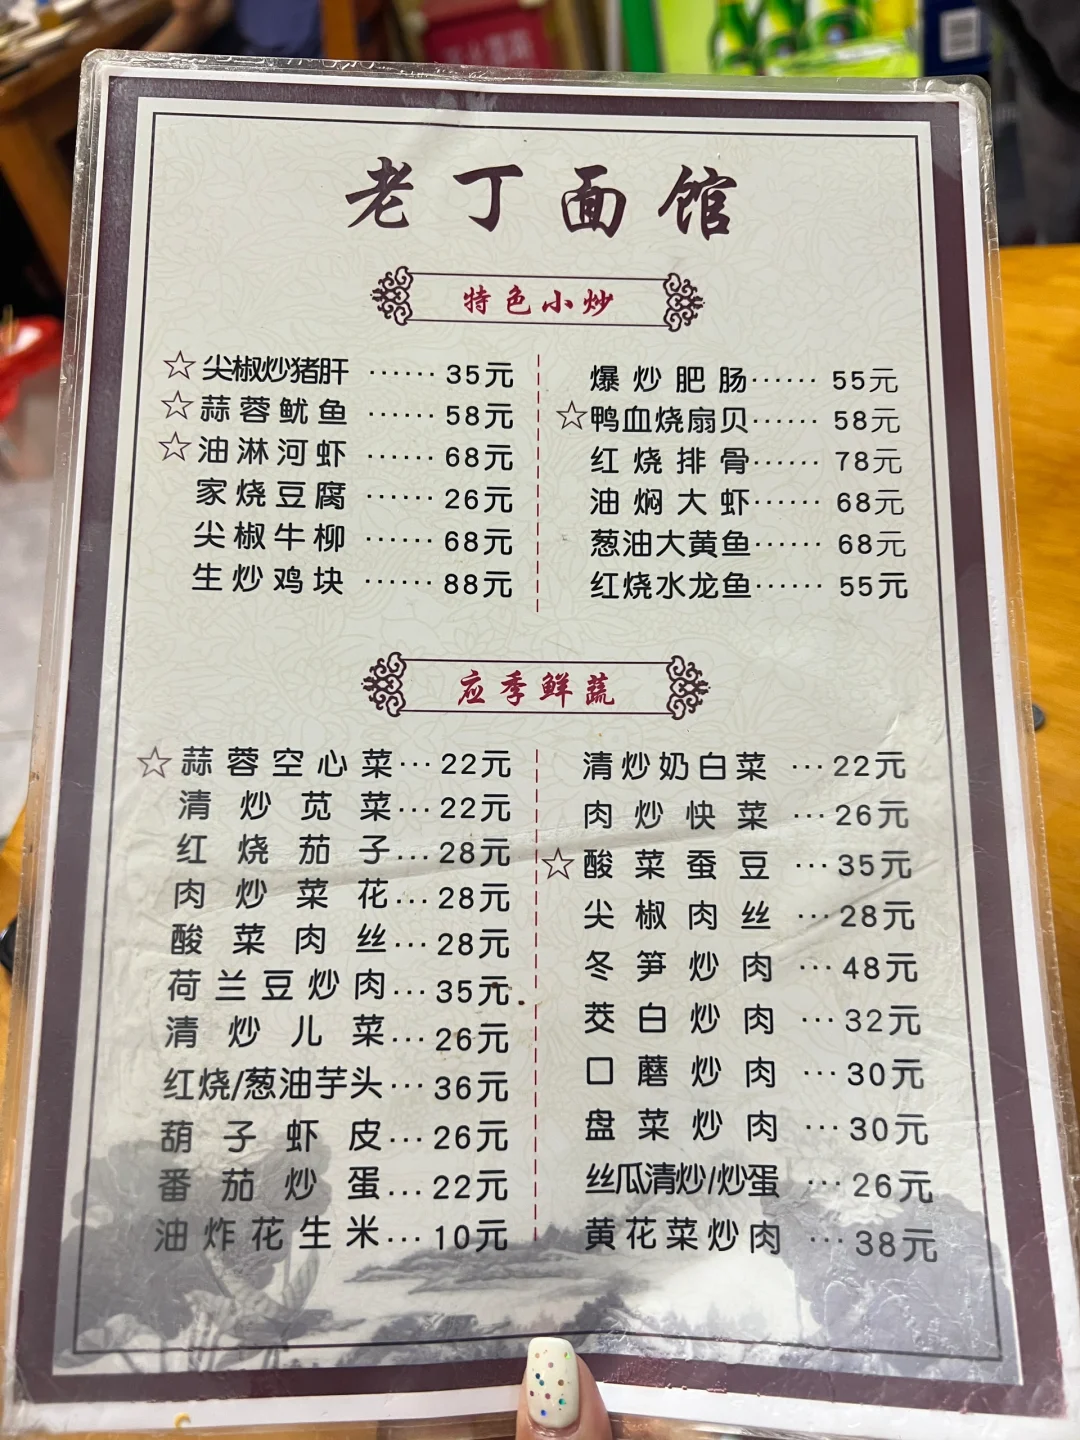 老丁面馆
特色小炒
☆尖椒炒猪肝 ······ 35元
☆蒜蓉鱿鱼 ······ 58元
☆油淋河虾 ······ 68元
家烧豆腐 ······ 26元
尖椒牛柳 ······ 68元
生炒鸡块 ······ 88元
爆炒肥肠······ 55元
☆鸭血烧扇贝······ 58元
红烧排骨······ 78元
油焖大虾······ 68元
葱油大黄鱼······ 68元
红烧水龙鱼······ 55元
应季鲜蔬
☆蒜蓉空心菜···22元
清炒苋菜···22元
红烧茄子···28元
肉炒菜花···28元
酸菜肉丝···28元
荷兰豆炒肉···35元
清炒儿菜···26元
红烧/葱油芋头···36元
葫子虾皮···26元
番茄炒蛋···22元
油炸花生米···10元
清炒奶白菜 ···22元
肉炒快菜 ···26元
☆酸菜蚕豆 ···35元
尖椒肉丝 ···28元
冬笋炒肉 ···48元
茭白炒肉 ···32元
口蘑炒肉 ···30元
盘菜炒肉 ···30元
丝瓜清炒/炒蛋 ···26元
黄花菜炒肉 ···38元